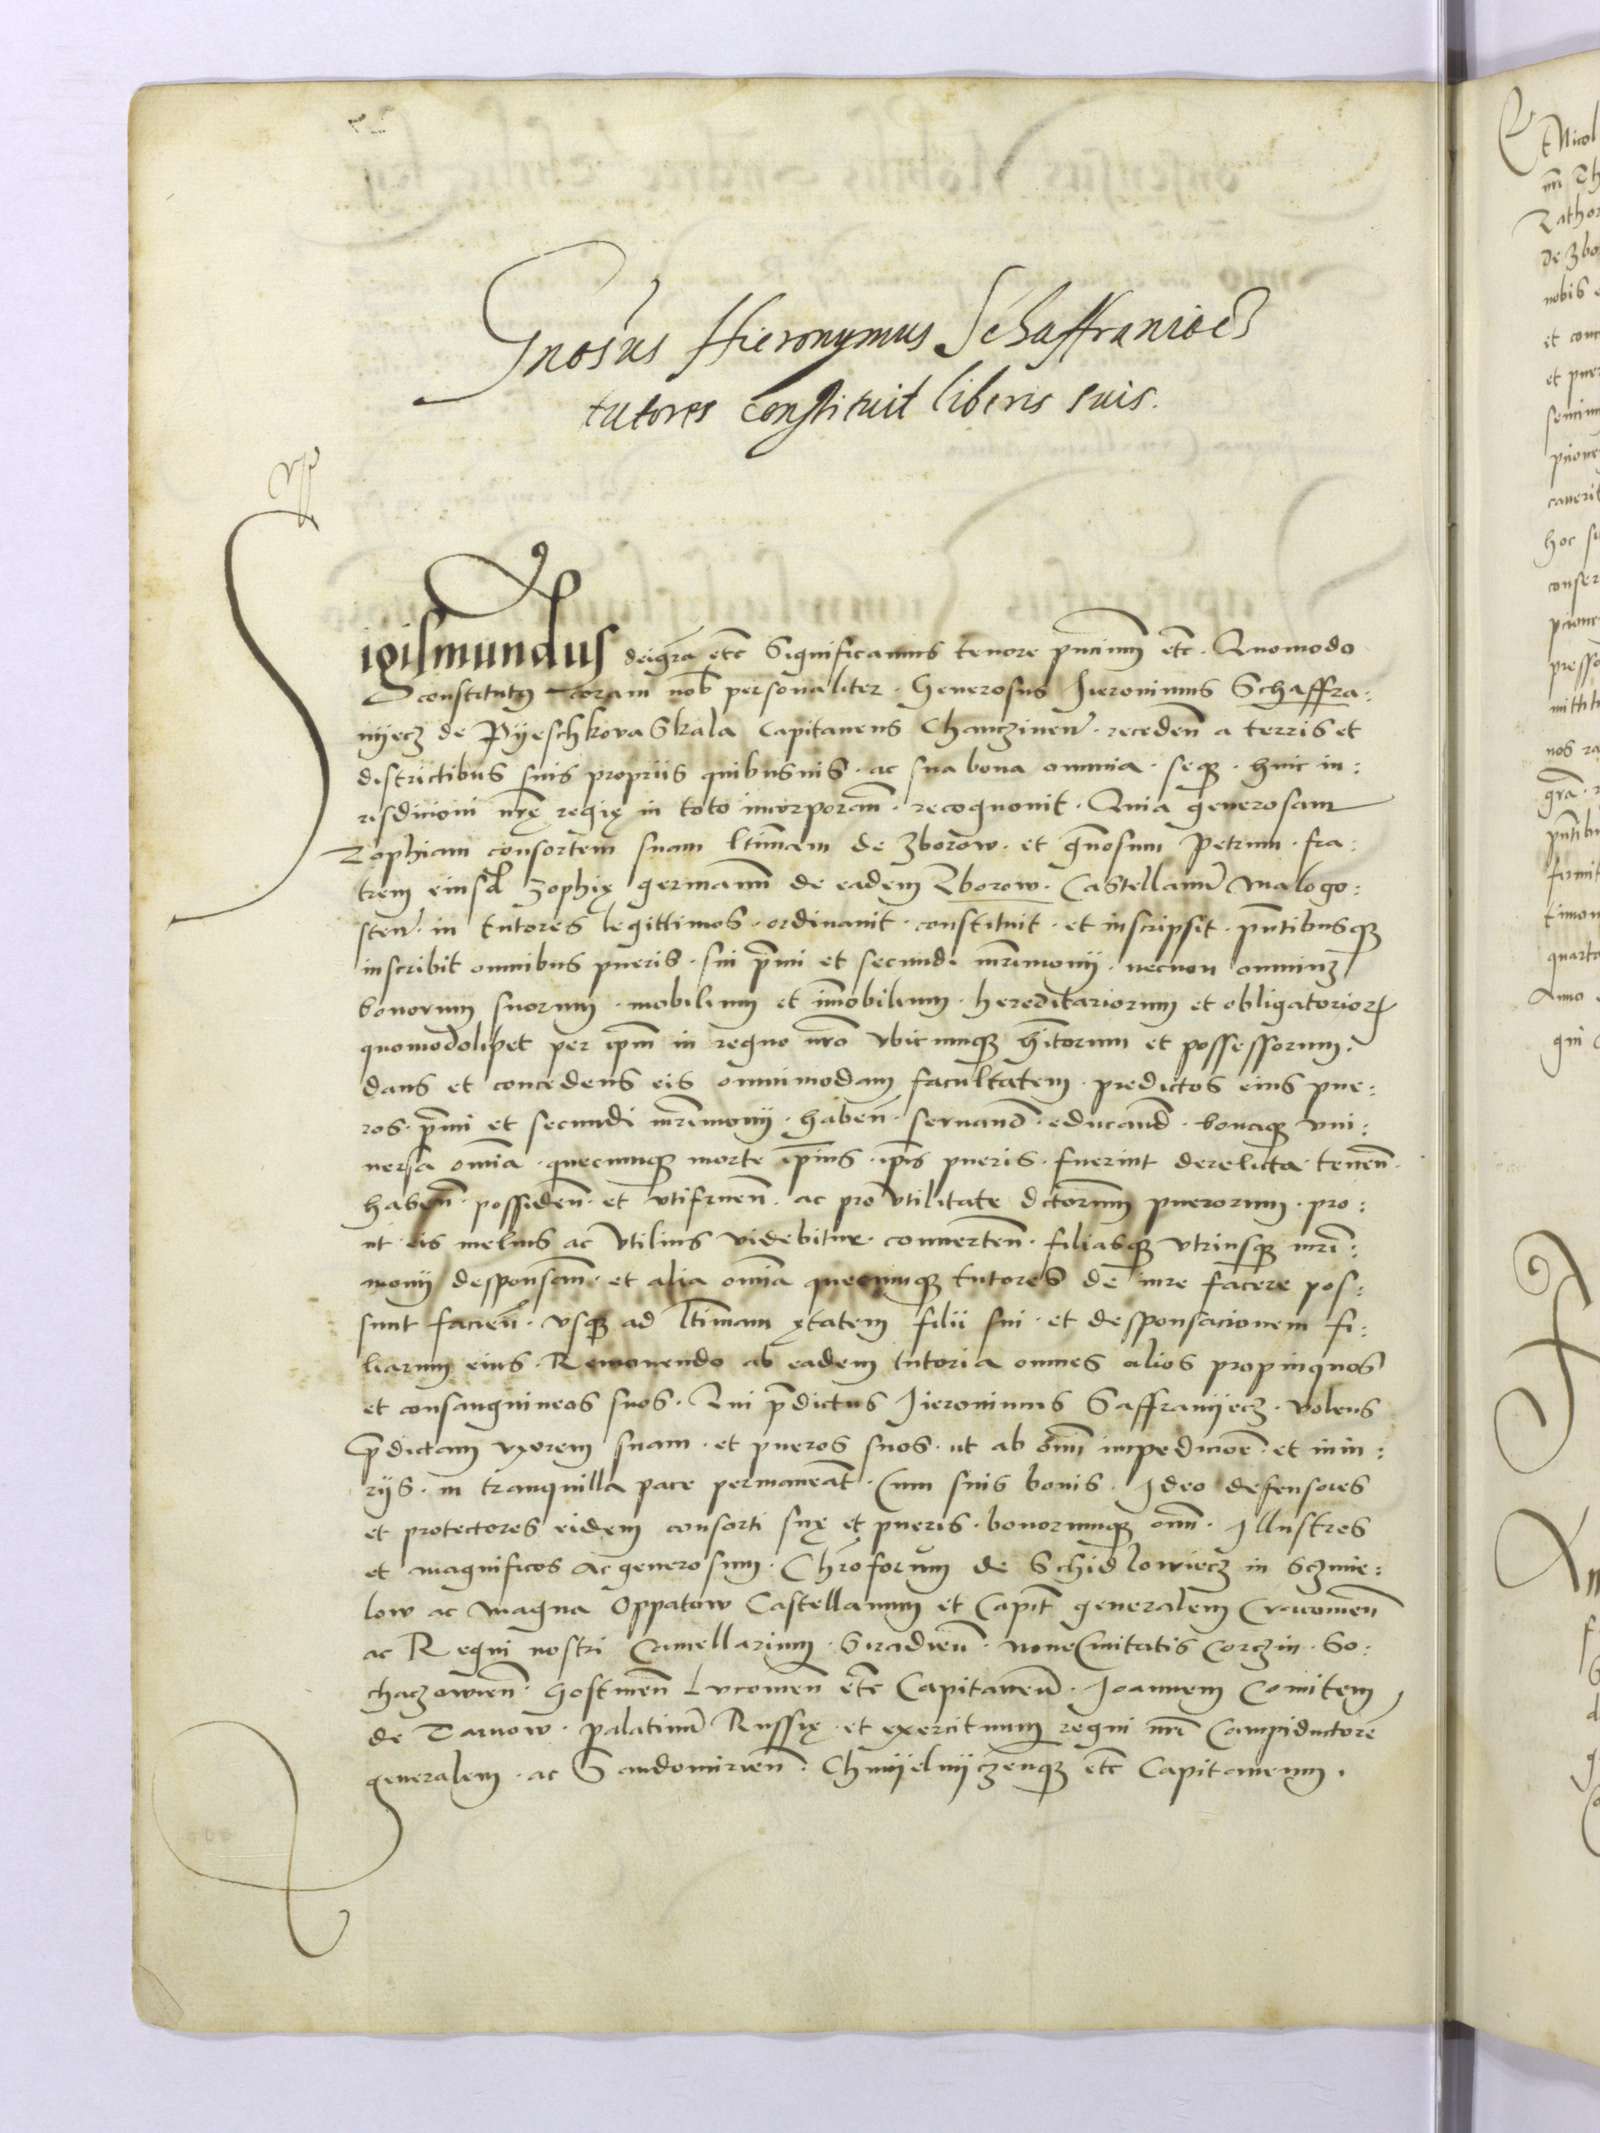 Gnosus Hieronymus Schaffranioes
tutores constituit liberis suis.
Sigismundus dei gra etc Significamus tenore pntium etc. Quomodo
constitutus coram nob personaliter. Generosus Jieronimus Schaffra:
nyecz de Pyeschkova Skala Capitaneus Chancziner. receden a terris et
districtibus suis propriis quibusvis. ac sua bona omnia. seq. huic iu:
risdicioni nre regie in toto incorporam. recognovit. Quia generosam
Zophiam consortem suam ltimam de Zborow. et gnosum Petrum. fra:
trem eiusd Zophie germanum de eadem Zborow. Castellanum Malogo:
sten. in tutores legittimos. ordinavit. constituit. et inscripsit. pntibusque
inscribit omnibus pueris. sui primi et secundi mrimonij. necnon omnium
bonorum suorum. mobilium et immobilium. hereditariorum et obligatorior
quomodolibet per ipm in regno nro ubicunque hitorum et possessorum.
dans et concedens eis omnimodam facultatem. predictos eius pue:
ros. primi et secundi mrimonij. haben. servand. educand. bonaque uni:
versa omia. quecunque morte ipius. ipis pueris. fuerint derelicta. tenen.
haben. possiden. et utifruen. ac pro utilitate dictorum puerorum. pro:
ut eis melius ac utilius videbitur. converten. filiasque utriusque mri:
monij desponsam. et alia omia quecunque tutores de iure facere pos:
sunt facien. usque ad ltimam etatem filii sui. et desponsacionem fi:
liarum eius. Removendo ab eadem tutoria omnes alios propinquos
et consanguineos suos. Qui predictus Jieronimus Saffranyecz. volens
predictam uxorem suam. et pueros suos. ut ab omi impedicioe. et iniu:
rijs. in tranquilla pace permaneat. Cum suis bonis. Ideo defensores
et protectores eidem consorti sue et pueris. bonorumque omi. Illustres
et magnificos ac generosum. Chroforum de Schidlowiecz in Sczmie:
low ac Magna Oppatow Castellanum et Capit generalem Cracovien
ac Regni nostri Cancellarium. Siradien. nove Civitatis Corczin. So:
chaczowien. Gostinen Lucomen etc Capitaneum. Joannem Comitem
de Tarnow. palatinum Russie. et exercituum regni nri Campiductore
generalem. ac Sandomirien. Chmyelnyczenque etc Capitaneum.